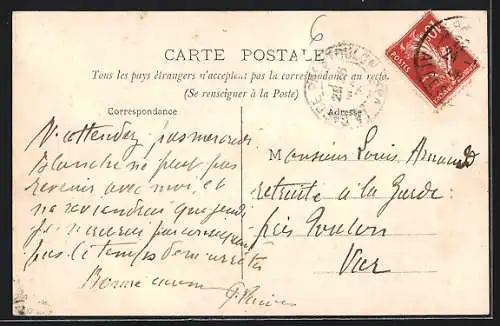 6
CARTE POSTALE
Tous les pays étrangers n'acceptent pas la correspondance au recto.
(Se renseigner à la Poste)
Correspondance
Adresse
POSTES
N'attendez pas mercredi
Blanche ne peut pas
revenir avec moi, et
ne reviendrai que jeudi
je n'aurai par conséquent
pas le temps de m'arrêter
Monsieur Louis Arnaud
retraité à la Garde
près Toulon
Var